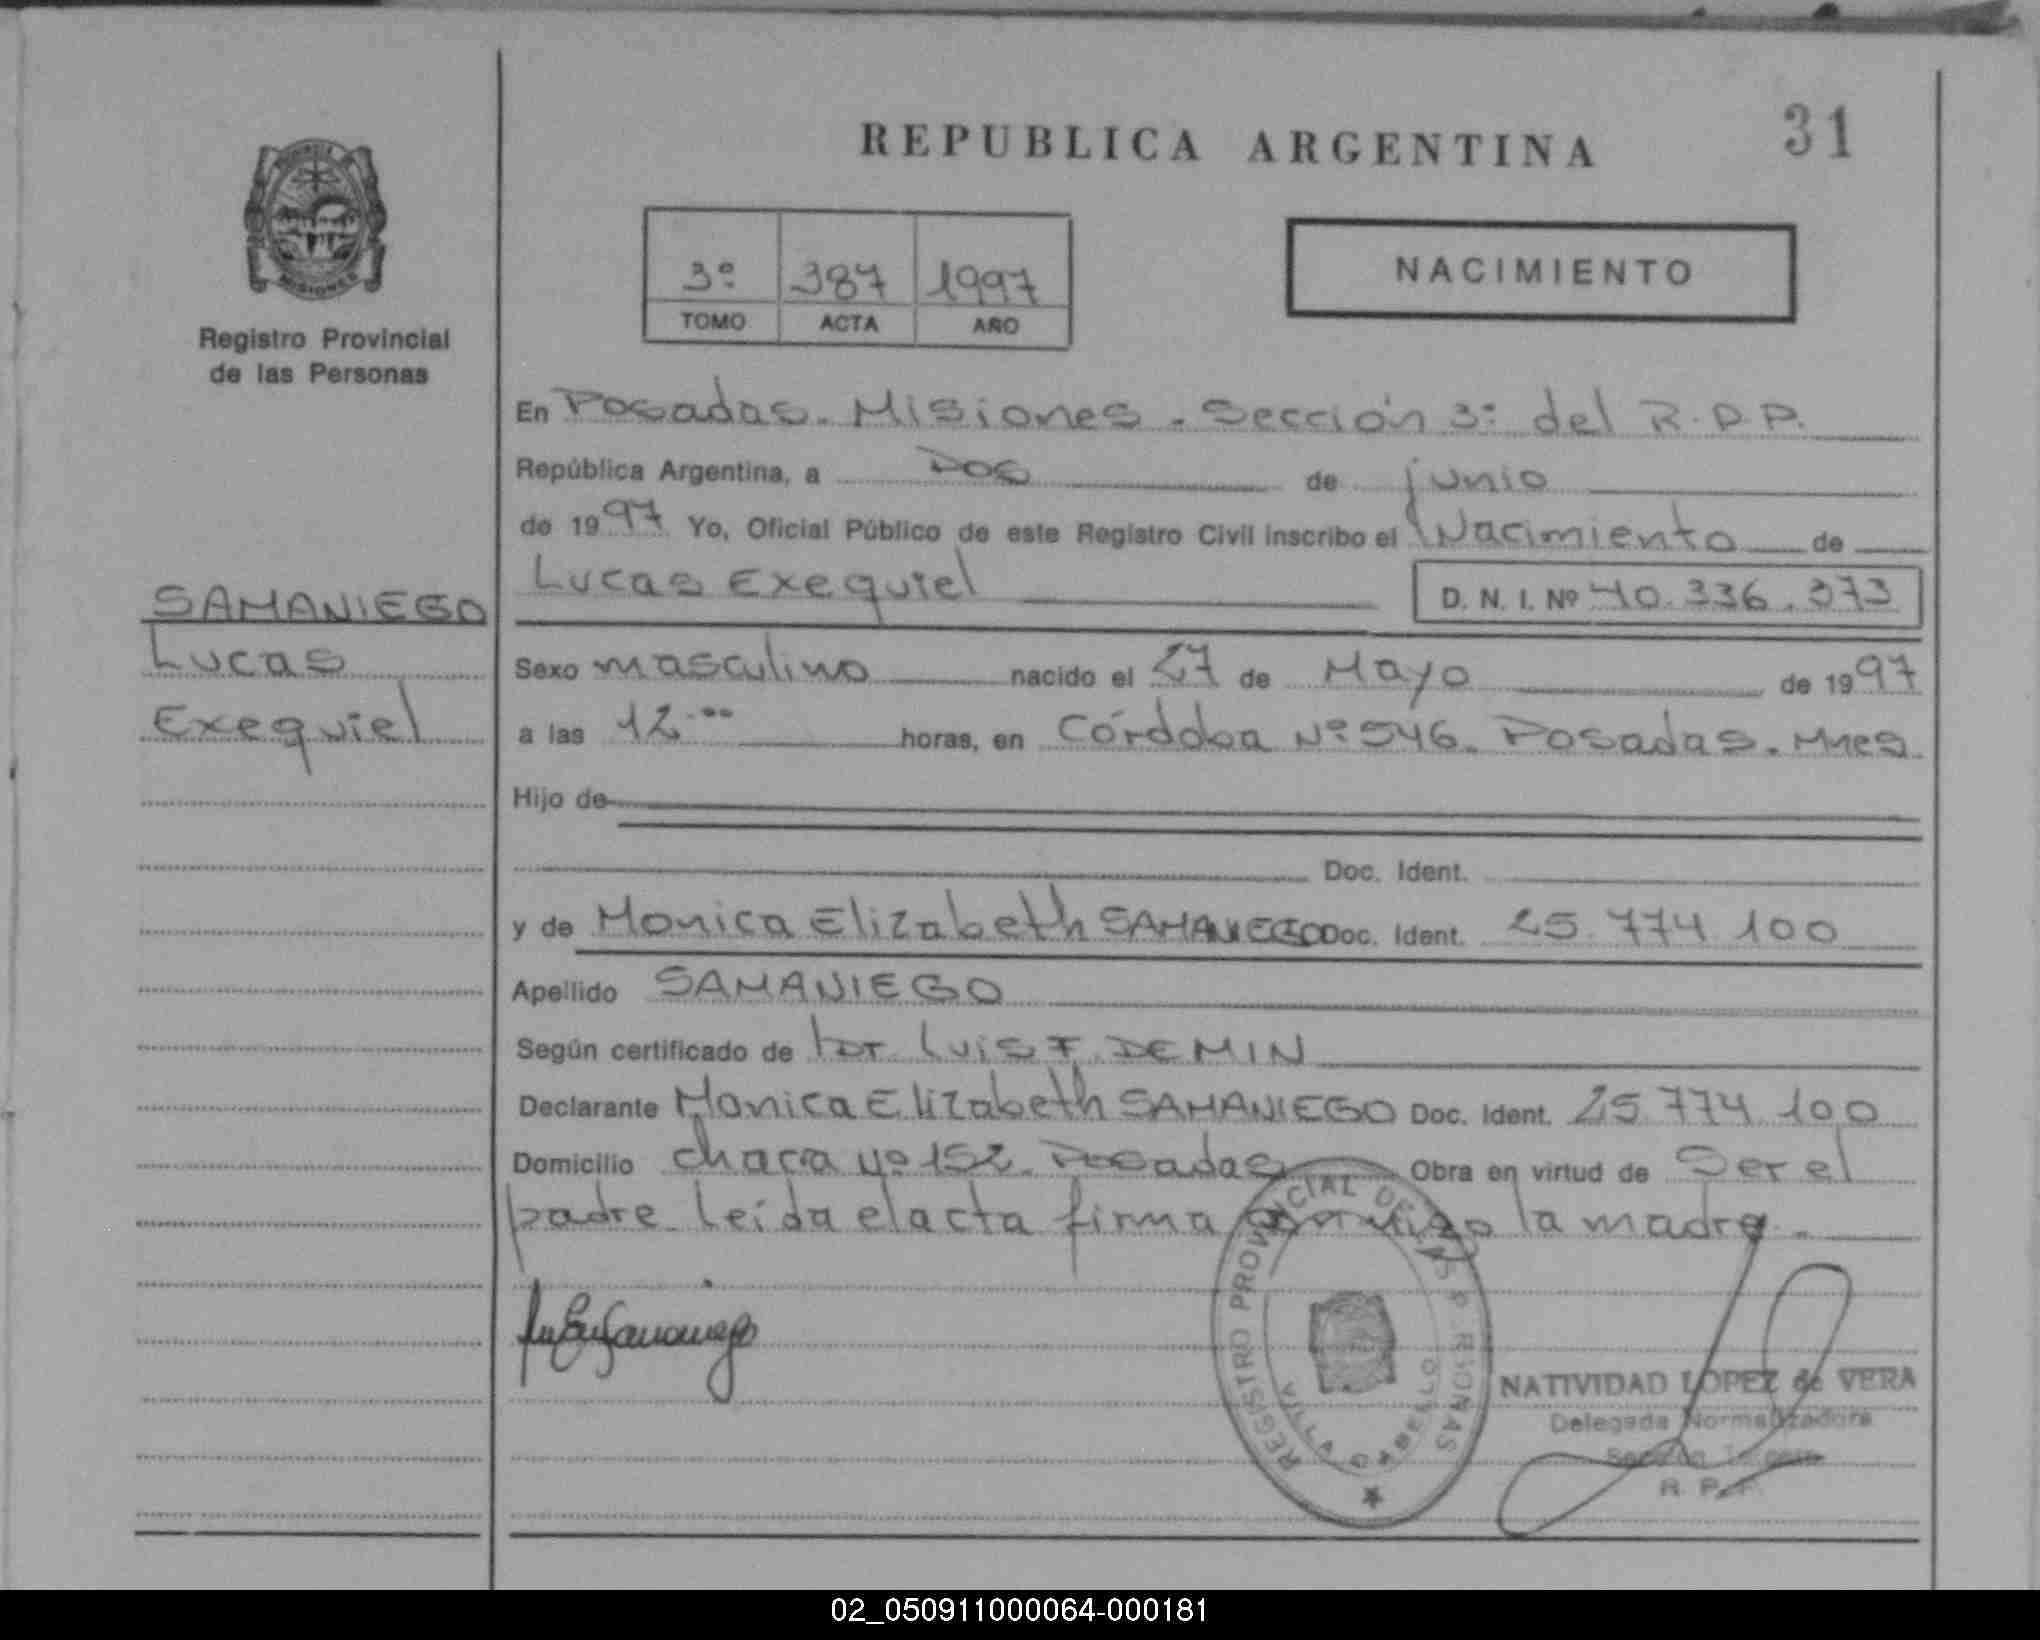 REPUBLICA ARGENTINA
31
PROVINCIA DE
MISIONES
Registro Provincial
de las Personas
3º 387 1997
TOMO ACTA AÑO
NACIMIENTO
En Posadas. Misiones. Sección 3ª del R.P.P.
República Argentina, a Dos de junio
de 1997 Yo, Oficial Público de este Registro Civil inscribo el Nacimiento de
Lucas Exequiel D. N. I. Nº 40.336.373
SAMANIEGO
Lucas
Exequiel
Sexo masculino nacido el 27 de Mayo de 1997
a las 12.00 horas, en Córdoba Nº 546. Posadas. Mnes.
Hijo de
Doc. Ident.
y de Monica Elizabeth SAMANIEGO Doc. Ident. 25.774.100
Apellido SAMANIEGO
Según certificado de Dr. Luis F. DEMIN
Declarante Monica Elizabeth SAMANIEGO Doc. Ident. 25.774.100
Domicilio chacra Nº 152. Posadas Obra en virtud de Ser el
padre. Leída el acta firma conmigo la madre.
REGISTRO PROVINCIAL DE LAS PERSONAS
VILLA CABELLO
NATIVIDAD LOPEZ de VERA
Delegada Normalizadora
Sección
R. P. P.
02_050911000064-000181